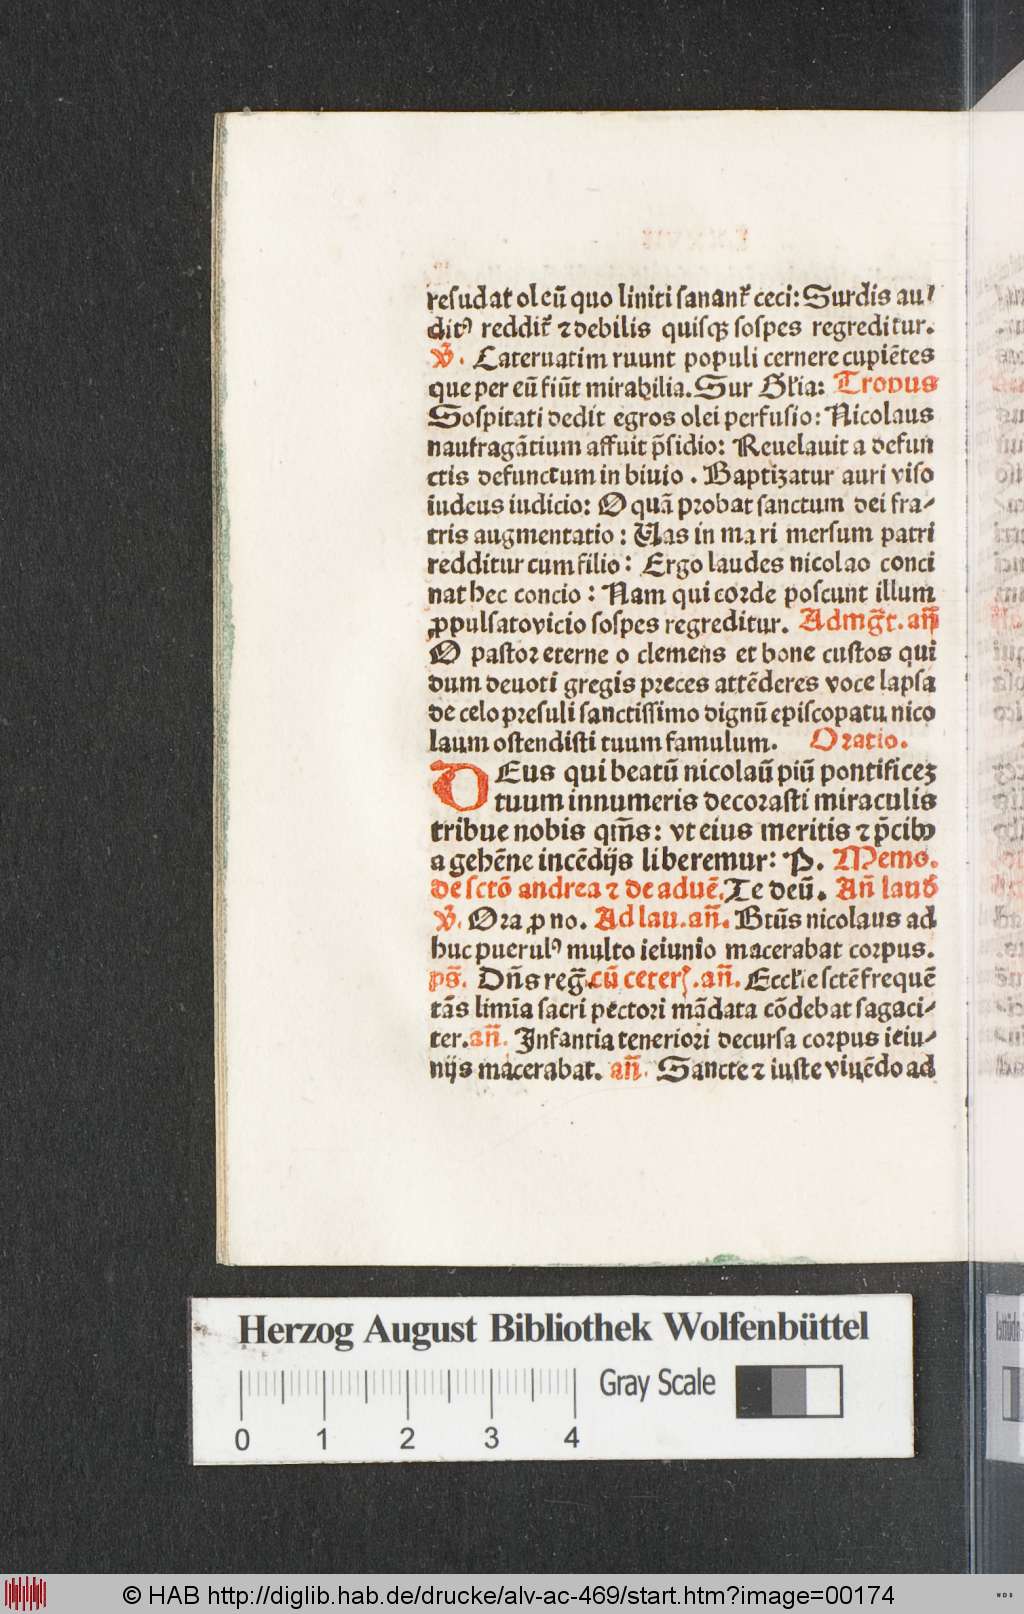 resudat oleū quo liniti sananť ceci: Surdis au⸗
ditꝰ reddiť ⁊ debilis quisqꝫ sospes regreditur.
℣. Cateruatim ruunt populi cernere cupiētes
que per eū fiūt mirabilia. Sur Gľia: Tropus
Sospitati dedit egros olei perfusio: Nicolaus
naufragātium affuit p̄sidio: Reuelauit a defun
ctis defunctum in biuio. Baptizatur auri viso
iudeus iudicio: O quā probat sanctum dei fra⸗
tris augmentatio: Uas in mari mersum patri
redditur cum filio: Ergo laudes nicolao conci
nat hec concio: Nam qui corde poscunt illum
ꝓpulsato vicio sospes regreditur. Ad mg̅t. an̄
O pastor eterne o clemens et bone custos qui
dum deuoti gregis preces attēderes voce lapsa
de celo presuli sanctissimo dignū episcopatu nico
laum ostendisti tuum famulum. Oratio.
DEus qui beatū nicolaū piū pontificeꝫ
tuum innumeris decorasti miraculis
tribue nobis qm̄s: vt eius meritis ⁊ p̄cibꝰ
a gehēne incēdijs liberemur: P. Memo.
de sctō andrea ⁊ de aduē. Te deū. An̄ laud
℣. Ora ꝓ no. Ad lau. an̄. Btūs nicolaus ad
huc puerulꝰ multo ieiunio macerabat corpus.
ps̄. Dn̄s reg̅. cū ceterꝭ. an̄. Eccľie sctē frequē
tās limīa sacri pectori mādata cōdebat sagaci⸗
ter. an̄. Infantia teneriori decursa corpus ieiu⸗
nijs macerabat. an̄. Sancte ⁊ iuste viuēdo ad
Herzog August Bibliothek Wolfenbüttel
Gray Scale
0 1 2 3 4
© HAB http://diglib.hab.de/drucke/alv-ac-469/start.htm?image=00174